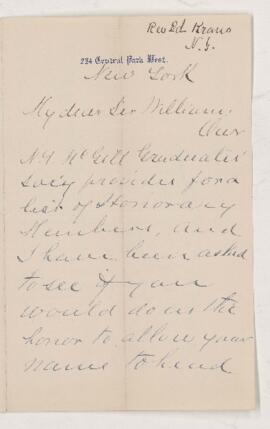 Rev Ed. Kraus
N.Y.
224 Central Park West.
New York
My dear Sir William,
Our
N.Y. McGill Graduates'
Soc'y provides for a
list of Honorary
Members, and
I have been asked
to see if you
would do us the
honor to allow your
name to head